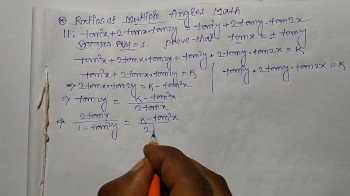 Ratios of Multiple Angles Math
If, tan²x+2tanx·tan2y = tan²y+2tany·tan2x
prove that tanx = ± tany
tan²x+2tanx·tan2y = tan²y+2tany·tan2x = K
tan²x+2tanx·tan2y = K | tan²y+2tany·tan2x = K
⇒ 2tanx·tan2y = K - tan²x
⇒ tan2y = K - tan²x / 2tanx
⇒ 2tany / 1 - tan²y = K - tan²x / 2